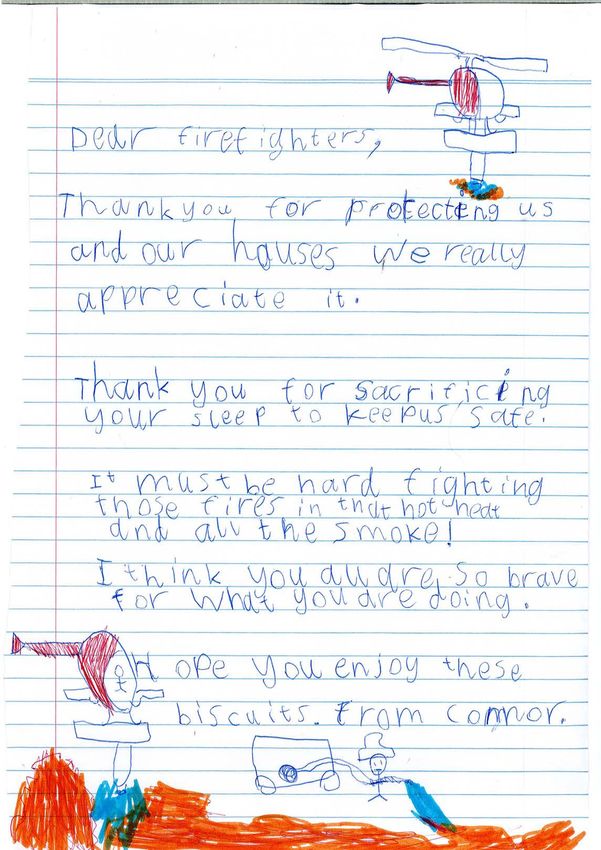 Dear firefighters,
Thankyou for protecting us
and our houses we really
appreciate it.
Thank you for sacrificing
your sleep to keep us safe.
It must be hard fighting
those fires in that hot heat
and all the smoke!
I think you all are so brave
for what you are doing.
Hope you enjoy these
biscuits. From Connor.